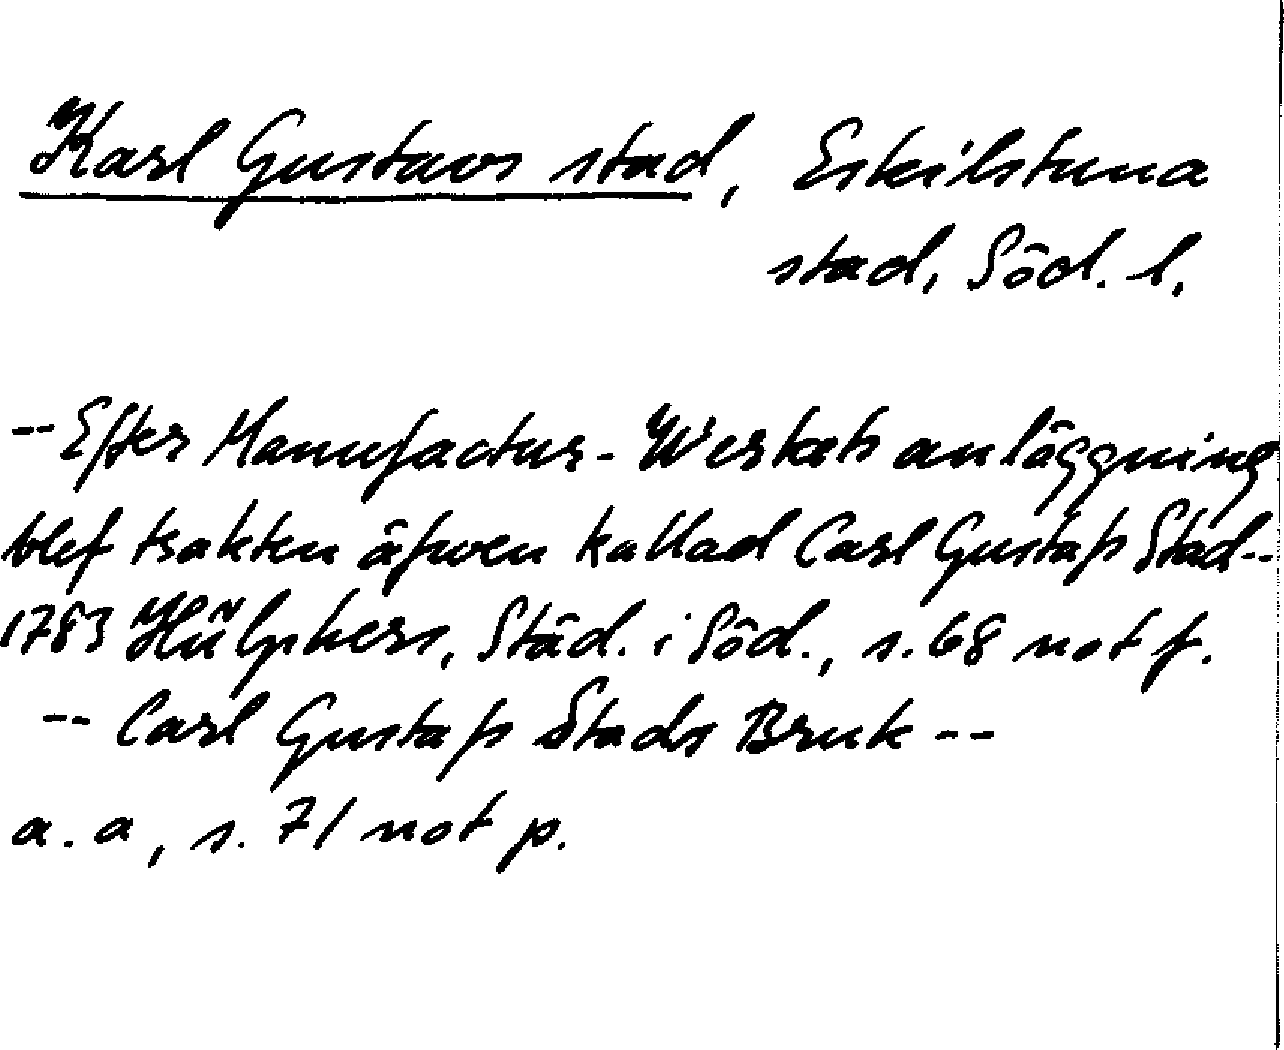 Karl Gustavs stad, Eskilstuna
stad, Söd. l.
-- Efter Manufactur-Werkets anläggning
blef trakten äfwen kallad Carl Gustafs Stad--
1783 Hülphers, Städ. i Söd., s. 68 not f.
-- Carl Gustafs Stads Bruk --
a. a, s. 71 not p.